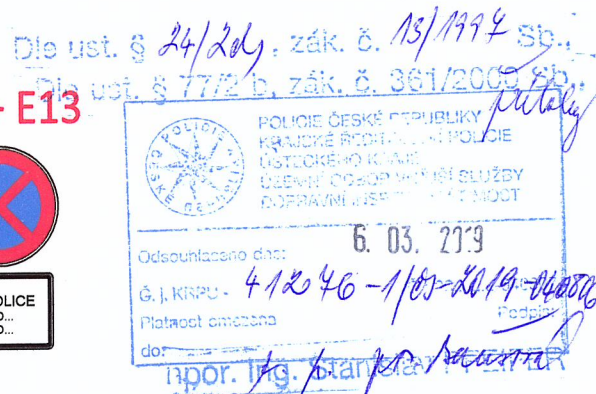 Dle ust. § 24/2d, zák. č. 13/1997 Sb.,
Dle ust. § 77/2 b, zák. č. 361/2000 Sb.,
- E13
POLICIE ČESKÉ REPUBLIKY
KRAJSKÉ ŘEDITELSTVÍ POLICIE
ÚSTECKÉHO KRAJE
ÚZEMNÍ ODBOR VNĚJŠÍ SLUŽBY
DOPRAVNÍ INSPEKTORÁT MOST
Odsouhlaseno dne: 6. 03. 2019
Č. j. KRPU - 412 76 -1/ČJ-2019-040806
Platnost omezena
Podpis:
do:
npor. Ing.
OLICE
O...
O...